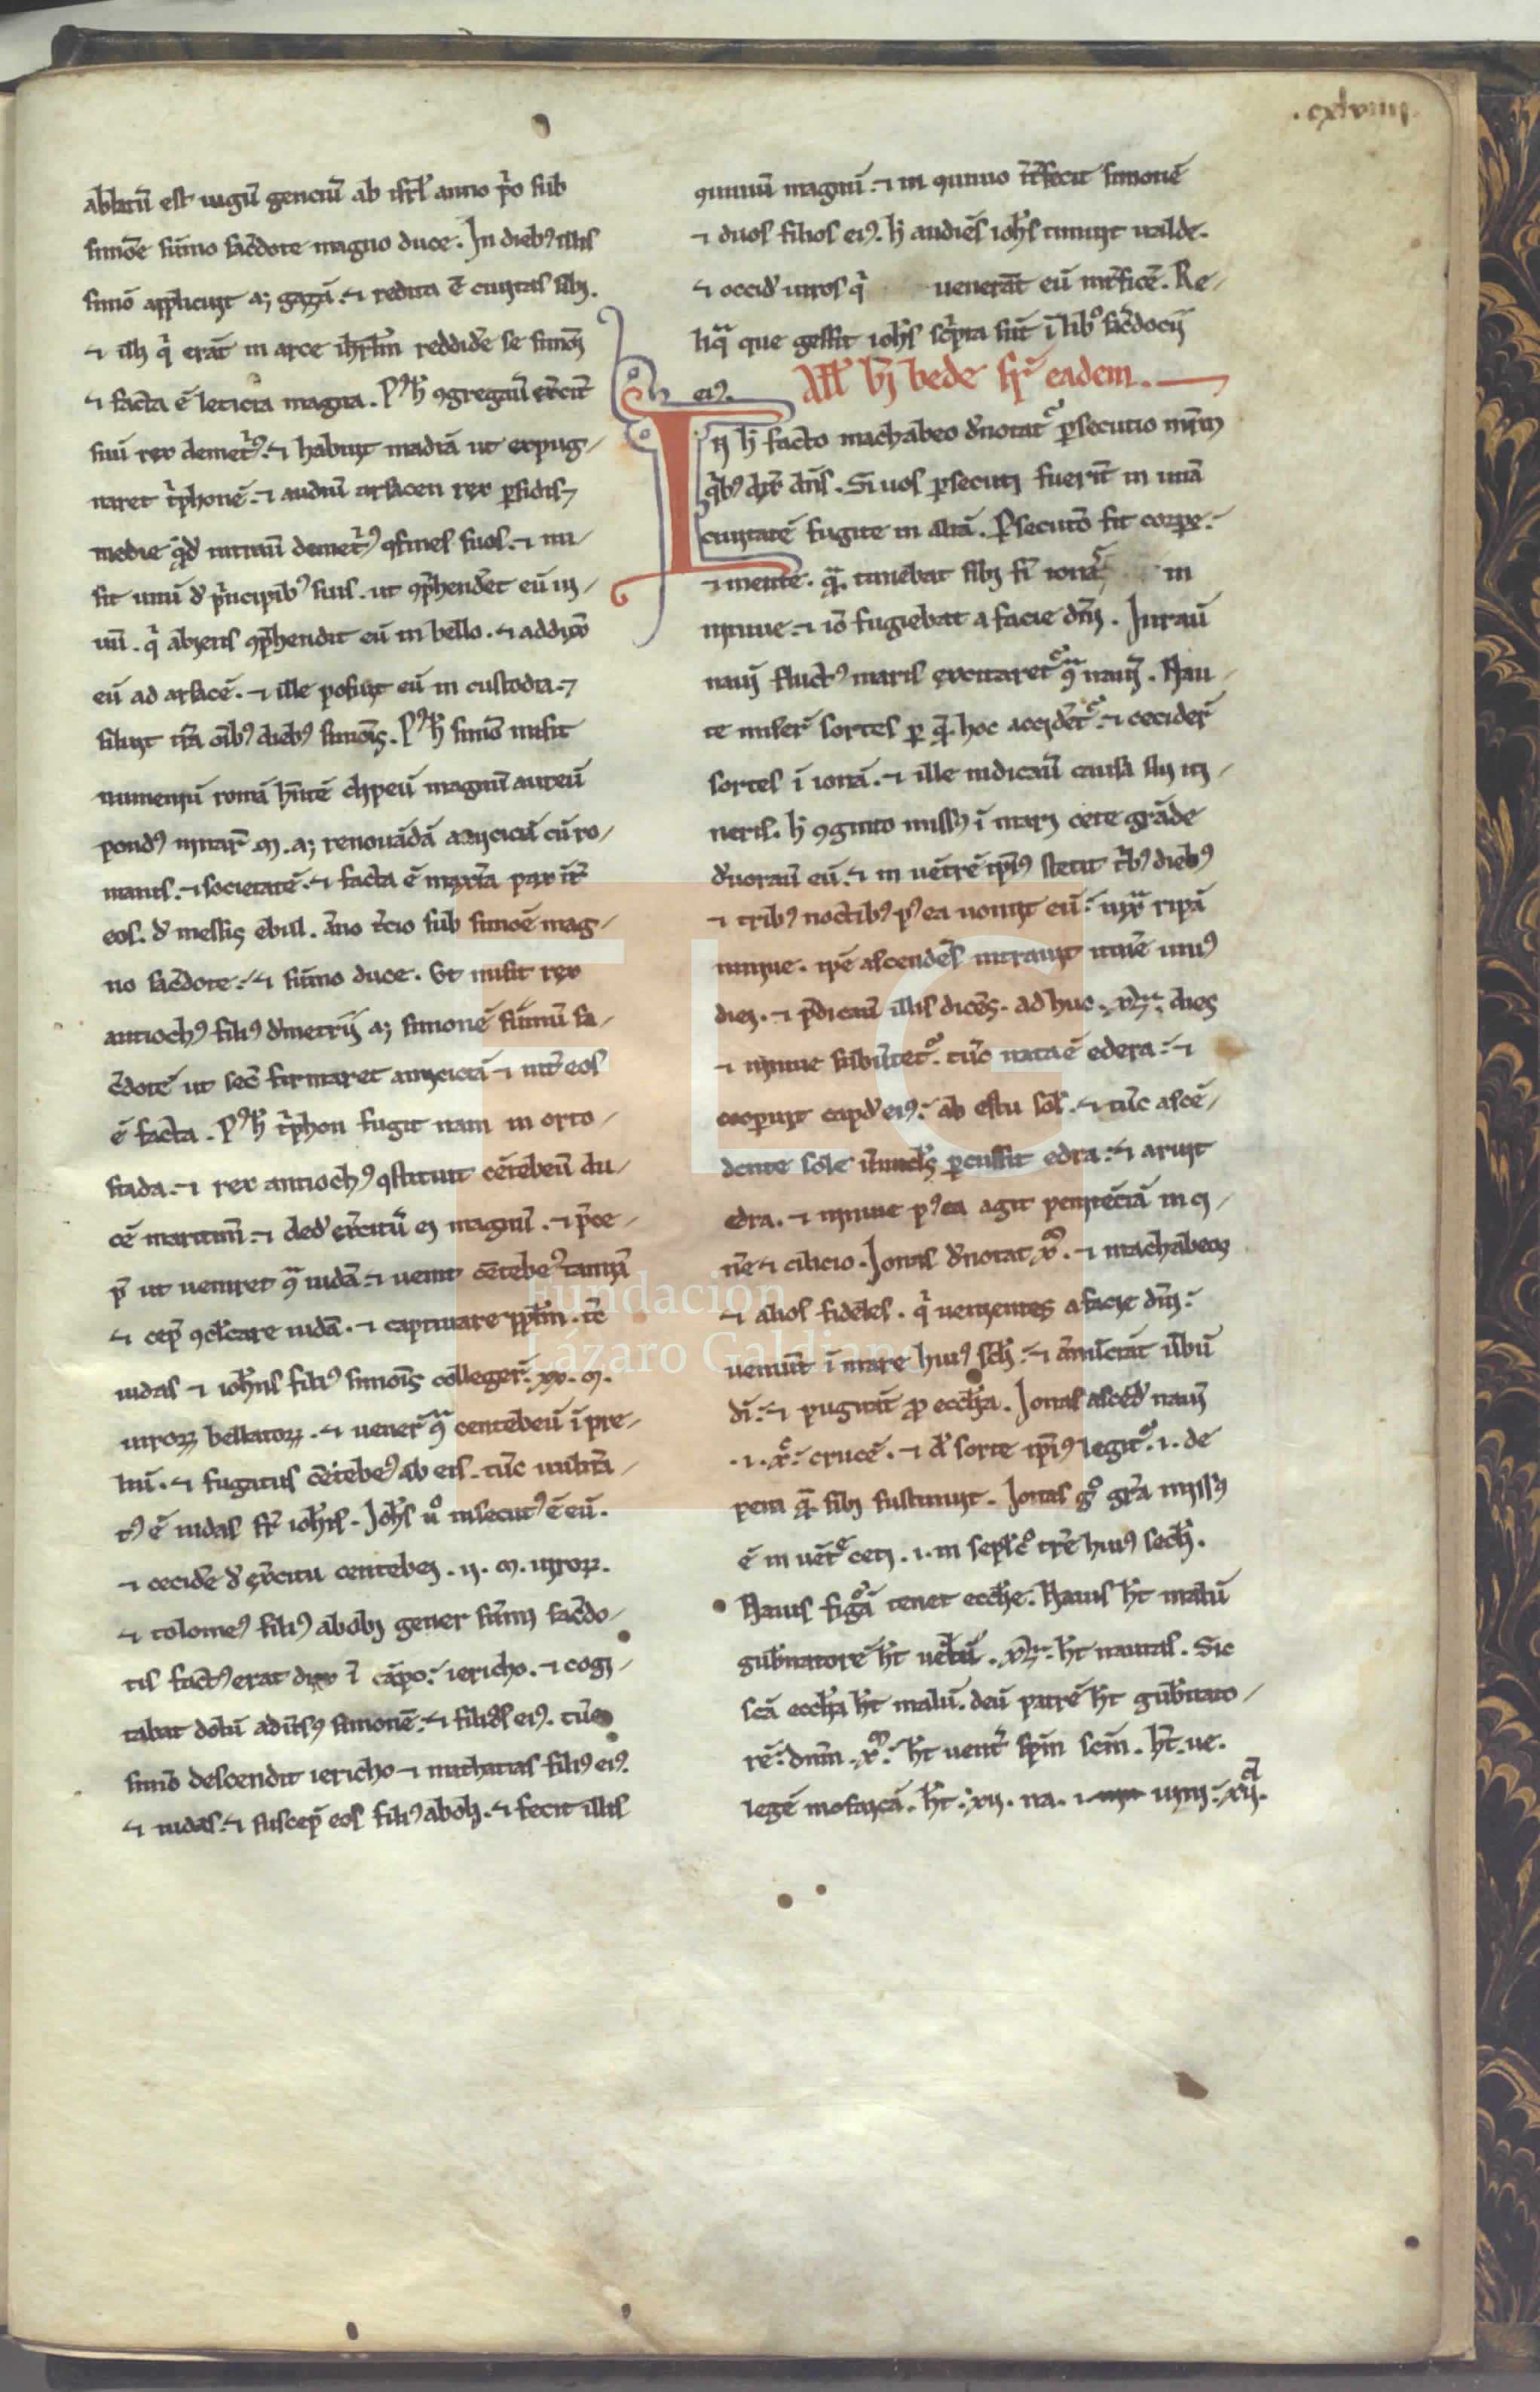 .cxlviiij.
ablatū est iugū genciū ab isrl' anno p̄o sub
simōe sūmo sac̄dote magno duce. In dieb' illis
simō applicuit aꝫ gazā. ⁊ reddita ē ciuitas sibi.
⁊ illi q̄ erāt in arce ihrlm̄ reddid̄e se simōi
⁊ facta ē leticia magna. P'h' ꝯgregauit
suū rex demetri'. ⁊ habiit madiā ut expug-
naret t̄phonē. ⁊ audiuit arsacen rex ꝑsidis ⁊
medie qd̄ intrauit demetri' ꝯfines suos. ⁊ mi-
sit unū d' p̄ncipib' suis. ut ꝯp̄hendet eū ui-
uū. q̄ abiens ꝯp̄hendit eū in bello. ⁊ adduxit
eū ad arsacē. ⁊ ille posuit eū in custodia. ⁊
siluit t̄ra oīb' dieb' simōis. P'h' simō misit
numeniū romā hn̄tē clipeū magnū aureū
pond' mnar̄ .m. aꝫ renouādā amiciciā cū ro-
manis. ⁊ societatē. ⁊ facta ē maxīa pax īt̄
eos. d' messis ebul. āno t̄cio sub simōe mag-
no sac̄dote. ⁊ sūmo duce. Et misit rex
antioch' fili' d'metrij aꝫ simonē sūmū sa-
c̄dotē ut secū firmaret amiciciā ⁊ int̄ eos
ē facta. P'h' t̄phon fugit naui in orto-
siada. ⁊ rex antioch' ꝯstituit cētebeū du-
cē maritimū. ⁊ ded' exercitū ei magnū. ⁊ p̄ce-
p̄ ut ueniret ꝯ iudā. ⁊ uenit cētebe' iamniā
⁊ cep̄ ꝯculcare iudā. ⁊ captiuare pplm̄. tc̄
iudas ⁊ ioh's fili' simōis colleger̄. xx. m.
uiroꝝ bellatoꝝ. ⁊ uener̄ ꝯ centebeū ī pre-
liū. ⁊ fugatus cētebe' ab eis. tūc uulnera-
t' ē iudas fr̄ ioh'is. Joh's u° insecut' ē eū.
⁊ cecid̄e d' ex̄citu centebei. ij. m. uiroꝝ.
⁊ tolome' fili' abobi gener sūmi sac̄do-
tis fact' erat dux ī cāpo iericho. ⁊ cogi-
tabat dolū adu̅s' simonē. ⁊ filios ei'. tūc
simō descendit iericho ⁊ mathatias fili' ei'.
⁊ iudas. ⁊ suscep̄ eos fili' abobi. ⁊ fecit illis
ꝯuiuiū magnū. ⁊ in ꝯuiuio īt̄fecit simonē
⁊ duos filios ei'. h' audiēs ioh's timuit ualde.
⁊ occid' uiros q̄ uenerāt eū int̄ficē. Re-
liq̄ que gessit ioh's sc̄pta sūt ī lib° sac̄docij
ei'. All' b'i bede sup̄ eadem.
In h' facto machabeo d'notat' ꝑsecutio mr̄m
qb' dix̄ dn̄s. Si uos ꝑsecuti fuerīt in unā
ciuitatē fugite in aliā. Ꝑsecutō fit corpe.
⁊ mente. q̄ timebat sibi sic̄ ionas in
niniue. ⁊ iō fugiebat a facie dn̄i. Intrauit
nauī fluct' maris excitaret' ꝯ nauī. Nau-
te miser̄ sortes ꝑ q̄ hoc accideret. ⁊ cecider̄
sortes ī ionā. ⁊ ille indicauit causā sui iti-
neris. h' ꝯgnito miss' ī mari cete grāde
d'uorauit eū. ⁊ in uētrē ipi' stetit t̄b' dieb'
⁊ trib' noctib' p' ea uomit eū iuxta ripā
niniue. ipē ascendēs intrauit itinē uni'
diei. ⁊ p̄dicauit illis dicēs. ad huc .xl. dies
⁊ niniue subūtet'. tūc nata ē edera. ⁊
cooꝑuit capd' ei' ab estu sol'. ⁊ tūc ascē-
dente sole ꝑcussit edra. ⁊ aruit
edra. ⁊ niniue p' ea agit penitēciā in ci-
ne ⁊ cilicio. Jonas d'notat xp̄. ⁊ machabeos
⁊ alios fideles. q̄ uenientes a facie dn̄i
ueniūt ī mare hui' scl'i. ⁊ ānūciāt ūbū
dī. ⁊ pugnāt ꝓ eccl'ia. Jonas ascēd' nauī
.i. xp̄c crucē. ⁊ d' sorte ipi' legit'. i. de
pena q̄ sibi sustinuit. Jonas g° grā miss'
ē in uētrē ceti. i. in sepl'c° t̄re hui' secl'i.
Nauis figurā tenet eccl'ie. Nauis h't malū
gub'natorē h't uētū. h't nautas. Sic
scā eccl'ia h't malū. deū patrē h't gub'nato-
rē. dn̄m xp̄. h't uent̄ spm̄ scm̄. h't. ue.
legē mosaycā. h't. xij. na. i. xij.